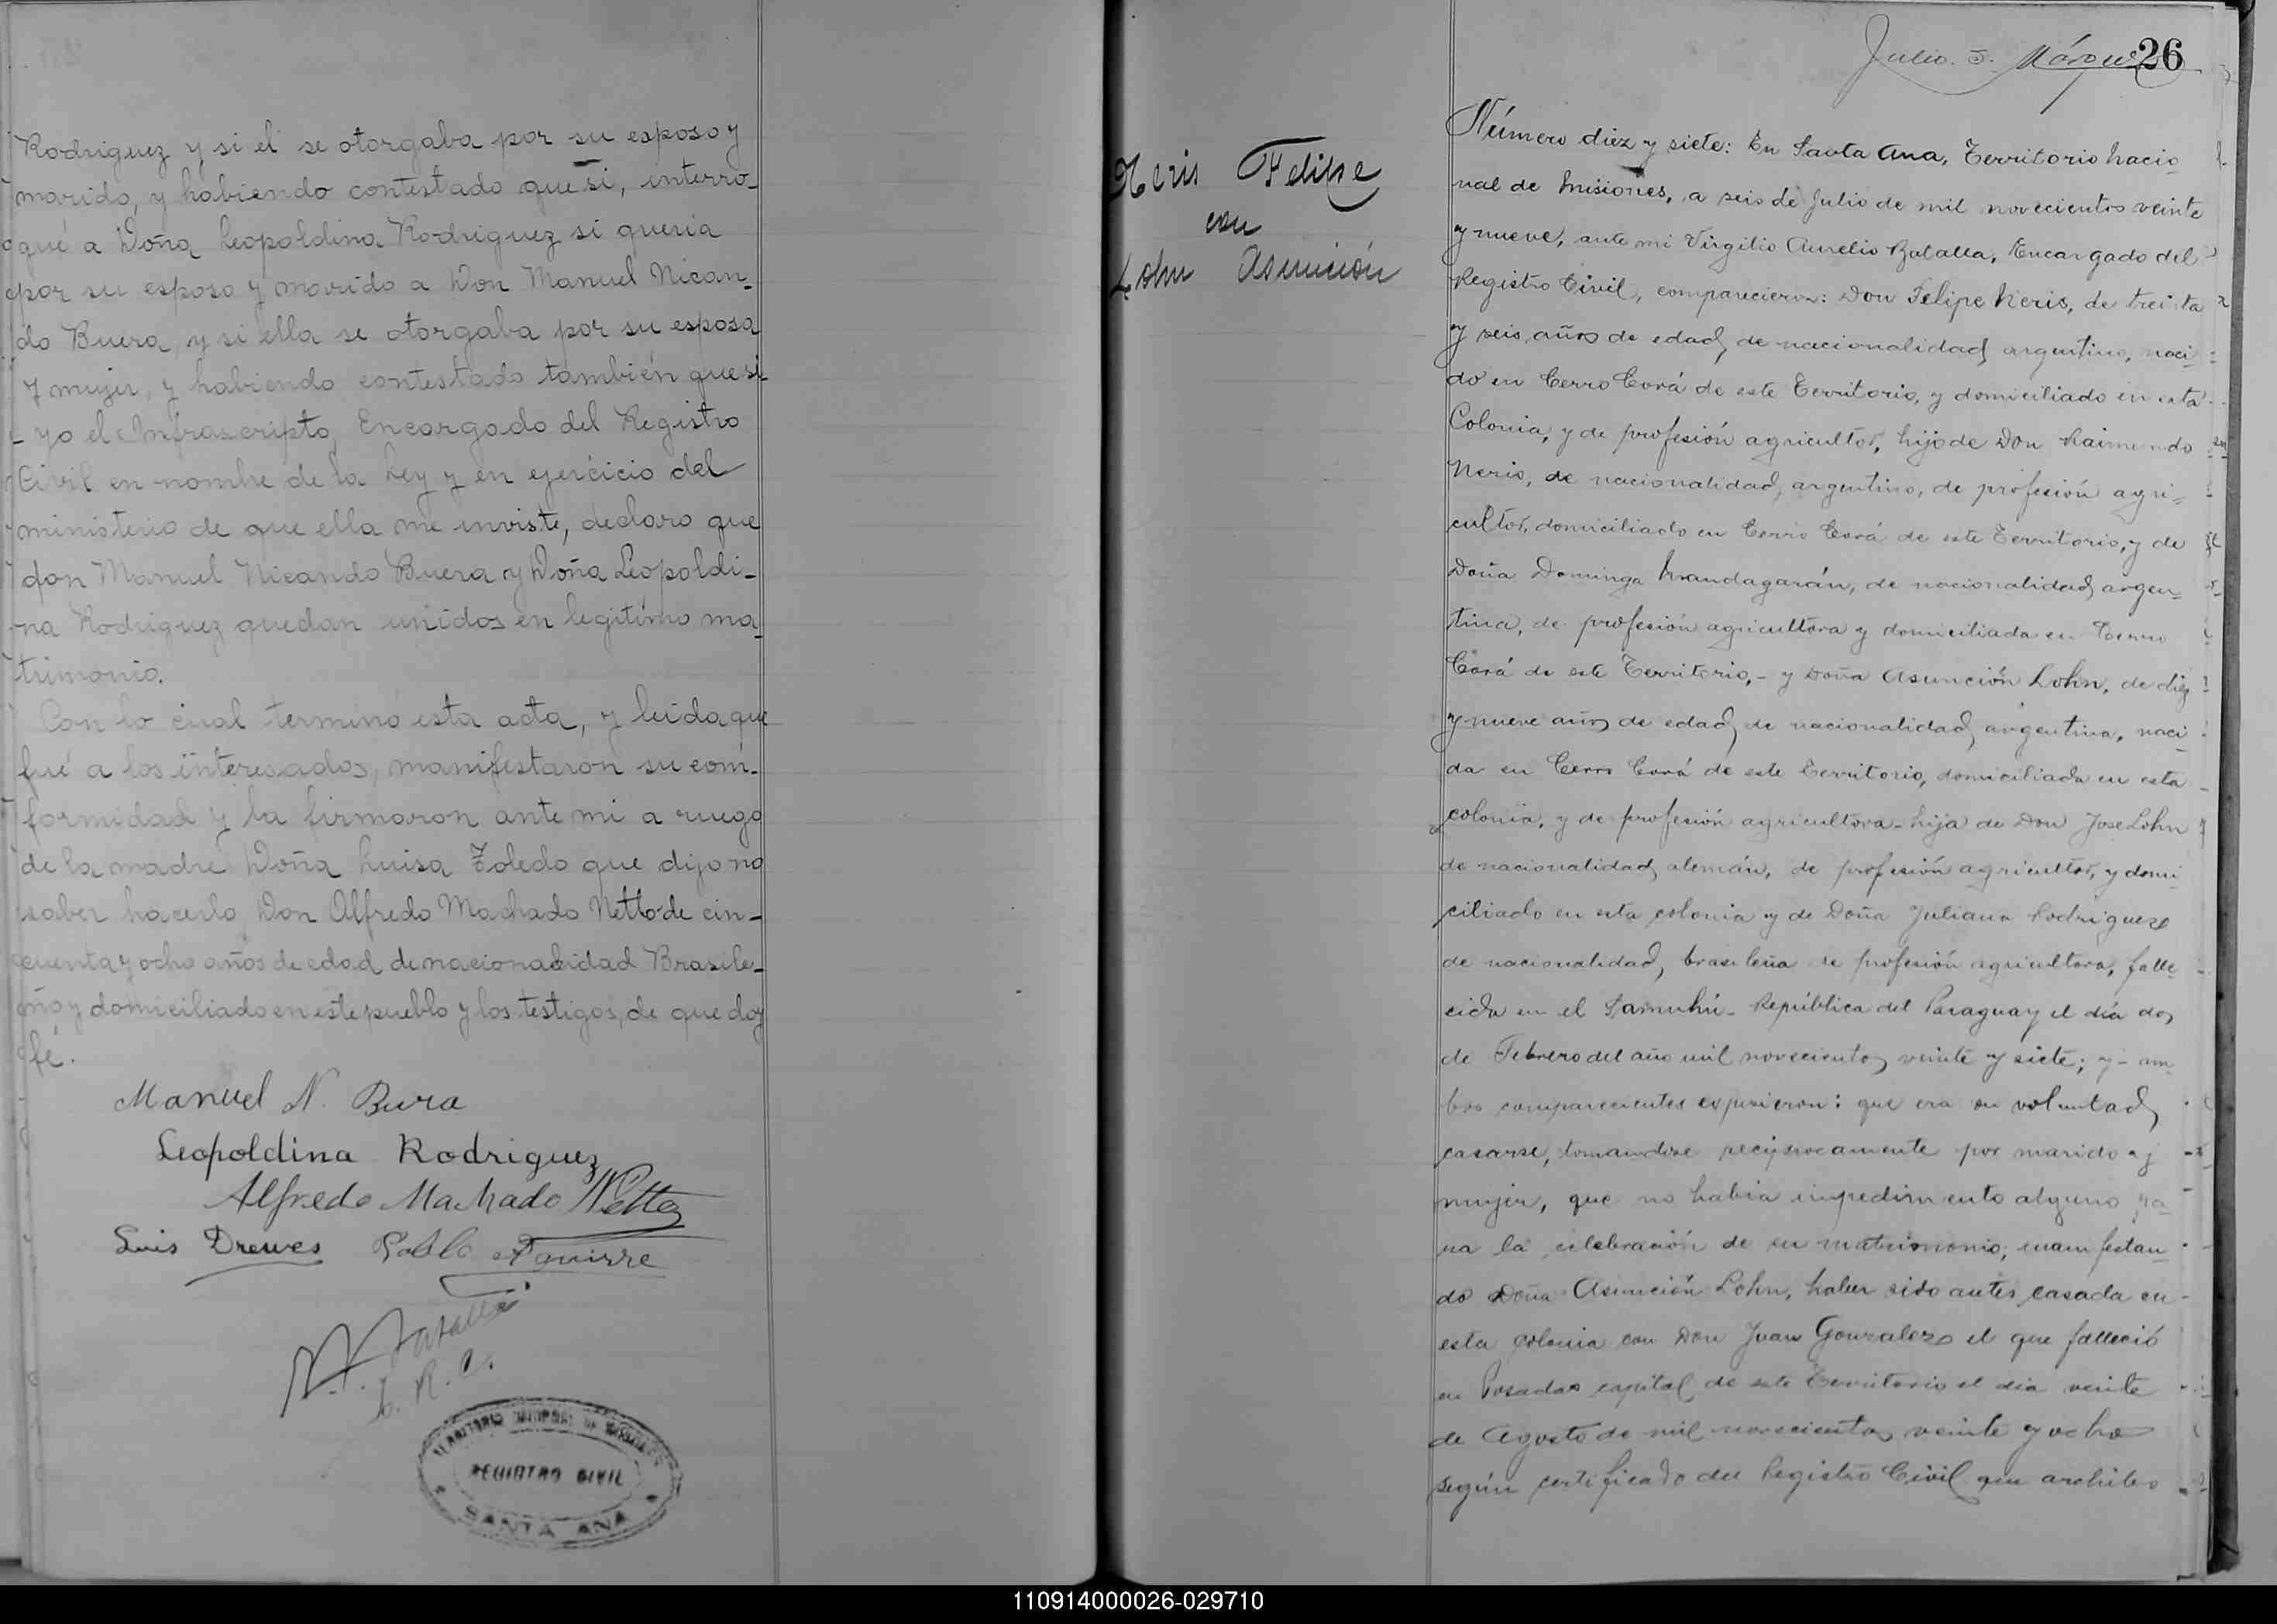 Rodriguez y si el se otorgaba por su esposo y
marido, y habiendo contestado que si, interro-
gué a Doña Leopoldina Rodriguez si queria
por su esposo y marido a Don Manuel Nican-
do Buera, y si ella se otorgaba por su esposa
y mujer, y habiendo contestado también que si
yo el Infrascripto, Encargado del Registro
Civil en nombre de la Ley y en ejercicio del
ministerio de que ella me inviste, declaro que
don Manuel Nicando Buera y Doña Leopoldi-
na Rodriguez quedan unidos en legitimo ma-
trimonio.
Con lo cual terminó esta acta, y leida que
fué a los interesados, manifestaron su com-
formidad y la firmaron ante mi a ruego
de la madre Doña Luisa Toledo que dijo no
saber hacerlo Don Alfredo Machado Netto de cin-
cuenta y ocho años de edad de nacionalidad Brasile-
ño y domiciliado en este pueblo y los testigos, de que doy
fé.
Manuel N. Bura
Leopoldina Rodriguez
Alfredo Machado Netto
Luis Drewes Pablo Aguirre
V. A. Batalla
E. R. C.
TERRITORIO NACIONAL DE MISIONES
REGISTRO CIVIL
SANTA ANA
Julio S. Márquez 26
Neris Felipe
con
Lohn Asunción
Número diez y siete: En Santa Ana, Territorio Nacio
nal de Misiones, a seis de Julio de mil novecientos veinte
y nueve, ante mi Virgilio Aurelio Batalla, Encargado del
Registro Civil, comparecieron: Don Felipe Neris, de treinta
y seis años de edad, de nacionalidad argentino, naci-
do en Cerro Corá de este Territorio, y domiciliado en esta
Colonia, y de profesión agricultor, hijo de Don Raimundo
Neris, de nacionalidad argentino, de profesión agri-
cultor, domiciliado en Cerro Corá de este Territorio, y de
Doña Dominga Mandagarán, de nacionalidad argen-
tina, de profesión agricultora y domiciliada en Cerro
Corá de este Territorio,- y Doña Asunción Lohn, de diez
y nueve años de edad, de nacionalidad argentina, naci-
da en Cerro Corá de este Territorio, domiciliada en esta
colonia, y de profesión agricultora - hija de Don Jose Lohn
de nacionalidad alemán, de profesión agricultor, y domi-
ciliado en esta colonia y de Doña Juliana Rodriguez
de nacionalidad, brasileña de profesión agricultora, falle-
cida en el República del Paraguay el día dos
de Febrero del año mil novecientos veinte y siete; y - am-
bos comparecientes expusieron: que era su voluntad
casarse, tomandose reciprocamente por marido y
mujer, que no habia impedimento alguno pa-
ra la celebración de su matrimonio, manifestan-
do Doña Asunción Lohn, haber sido antes casada en
esta colonia con Don Juan Gonzalez el que falleció
en Posadas capital de este Territorio el dia veinte
de Agosto de mil novecientos veinte y ocho
según certificado del Registro Civil que archibo
110914000026-029710